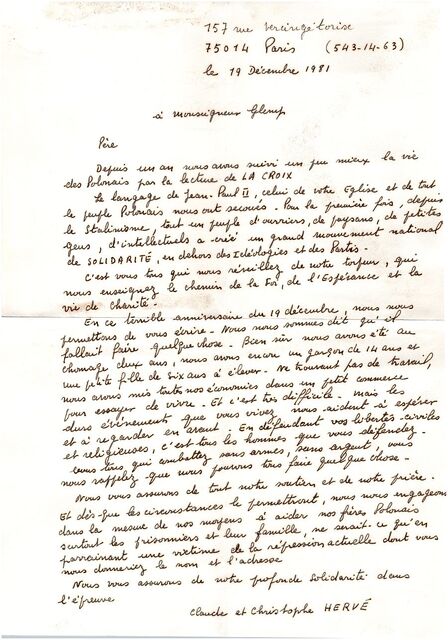 157 rue Vercingétorise
75014 Paris (543-14-63)
le 19 Décembre 1981
à Monseigneur Glemp
Père
Depuis un an nous avons suivi un peu mieux la vie
des Polonais par la lecture de LA CROIX
Le langage de Jean-Paul II, celui de votre Eglise et de tout
le peuple Polonais nous ont secoués. Pour la première fois, depuis
le Stalinisme, tout un peuple d'ouvriers, de paysans, de petites
gens, d'intellectuels a créé un grand mouvement national
de SOLIDARITÉ, en dehors des Idéologies et des Partis.
C'est vous tous qui nous réveillez de notre torpeur, qui
nous enseignez le chemin de la Foi, de l'Espérance et la
vie de Charité.
En ce terrible anniversaire du 19 décembre, nous nous
permettons de vous écrire. Nous nous sommes dit qu'il
fallait faire quelque chose. Bien sûr nous avons été au
chomage deux ans, nous avons encore un garçon de 14 ans et
une p'tite fille de six ans à élever. Ne trouvant pas de travail,
nous avons mis toutes nos économies dans un petit commerce
pour essayer de vivre. Et c'est très difficile. mais les
durs événements que vous vivez nous aident à espérer
et à regarder en avant. En défendant vos libertés civiles
et religieuses, c'est tous les hommes que vous défendez.
vous tous, qui combattez sans armes, sans argent, vous
nous rappelez que nous pouvons tous faire quelque chose.
Nous vous assurons de tout notre soutien et de notre prière.
Et dès que les circonstances le permettront, nous nous engageons
dans la mesure de nos moyens à aider nos frères Polonais
surtout les prisonniers et leur famille, ne serait-ce qu'en
parrainant une victime de la répression actuelle dont vous
nous donneriez le nom et l'adresse
Nous vous assurons de notre profonde solidarité dans
l'épreuve
Claude et Christophe HERVÉ